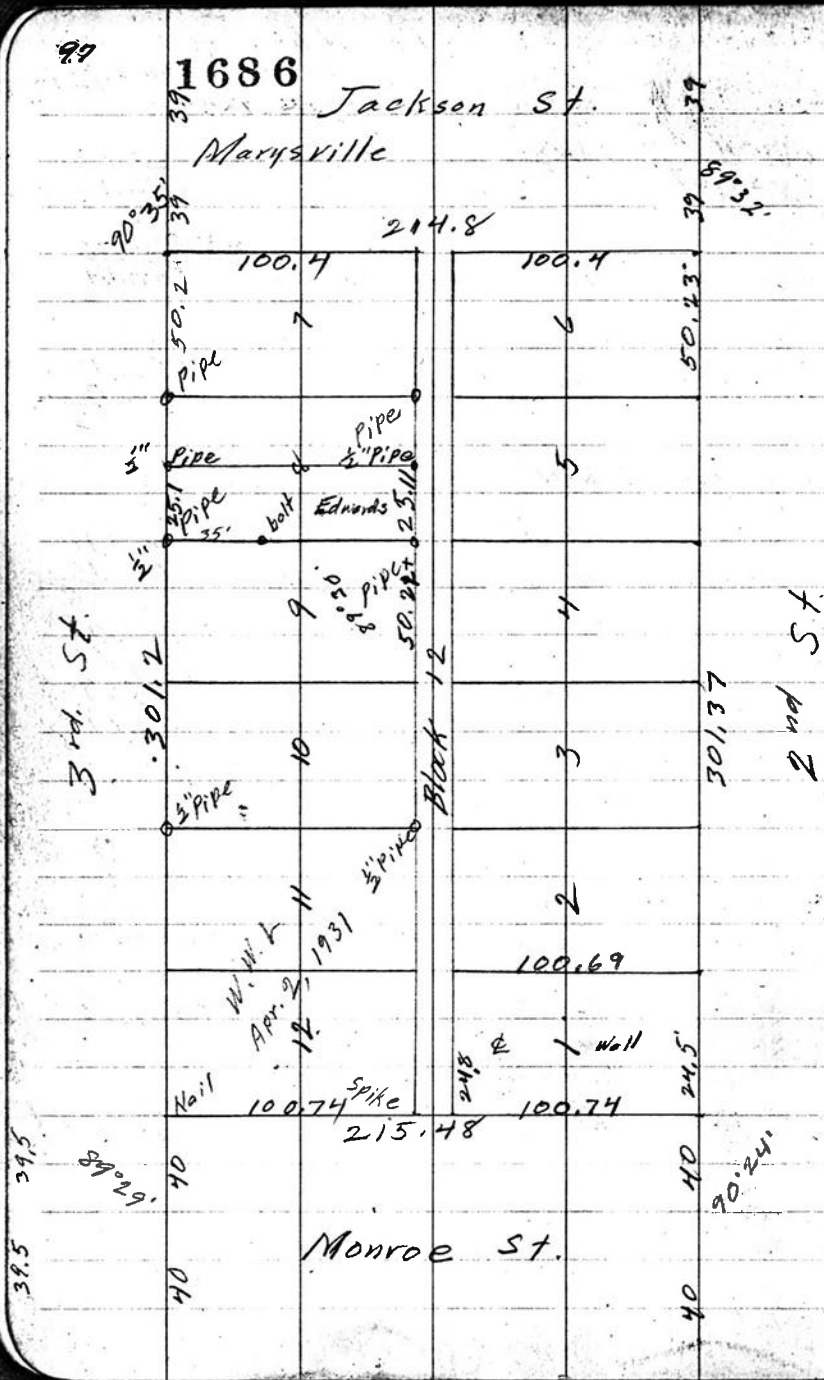 97
1686
39
Jackson St.
39
Marysville
90°35'
39
39
89°32'
214.8
100.4
100.4
50.2
7
6
50.23
Pipe
Pipe
½" Pipe
½" Pipe
8
5
25.1
Pipe
35'
bolt
Edwards
25.11
½"
Pipe
89°30'
50.22+
9
4
3rd. St.
301.2
Block 12
301.37
2nd St.
10
3
½" Pipe
½" Pipe
11
2
W.W.L
Apr. 2, 1931
100.69
12
1
Wall
24.8
24.5
Nail
100.74
Spike
100.74
215.48
39.5
89°29'
40
40
90°24'
Monroe St.
39.5
40
40